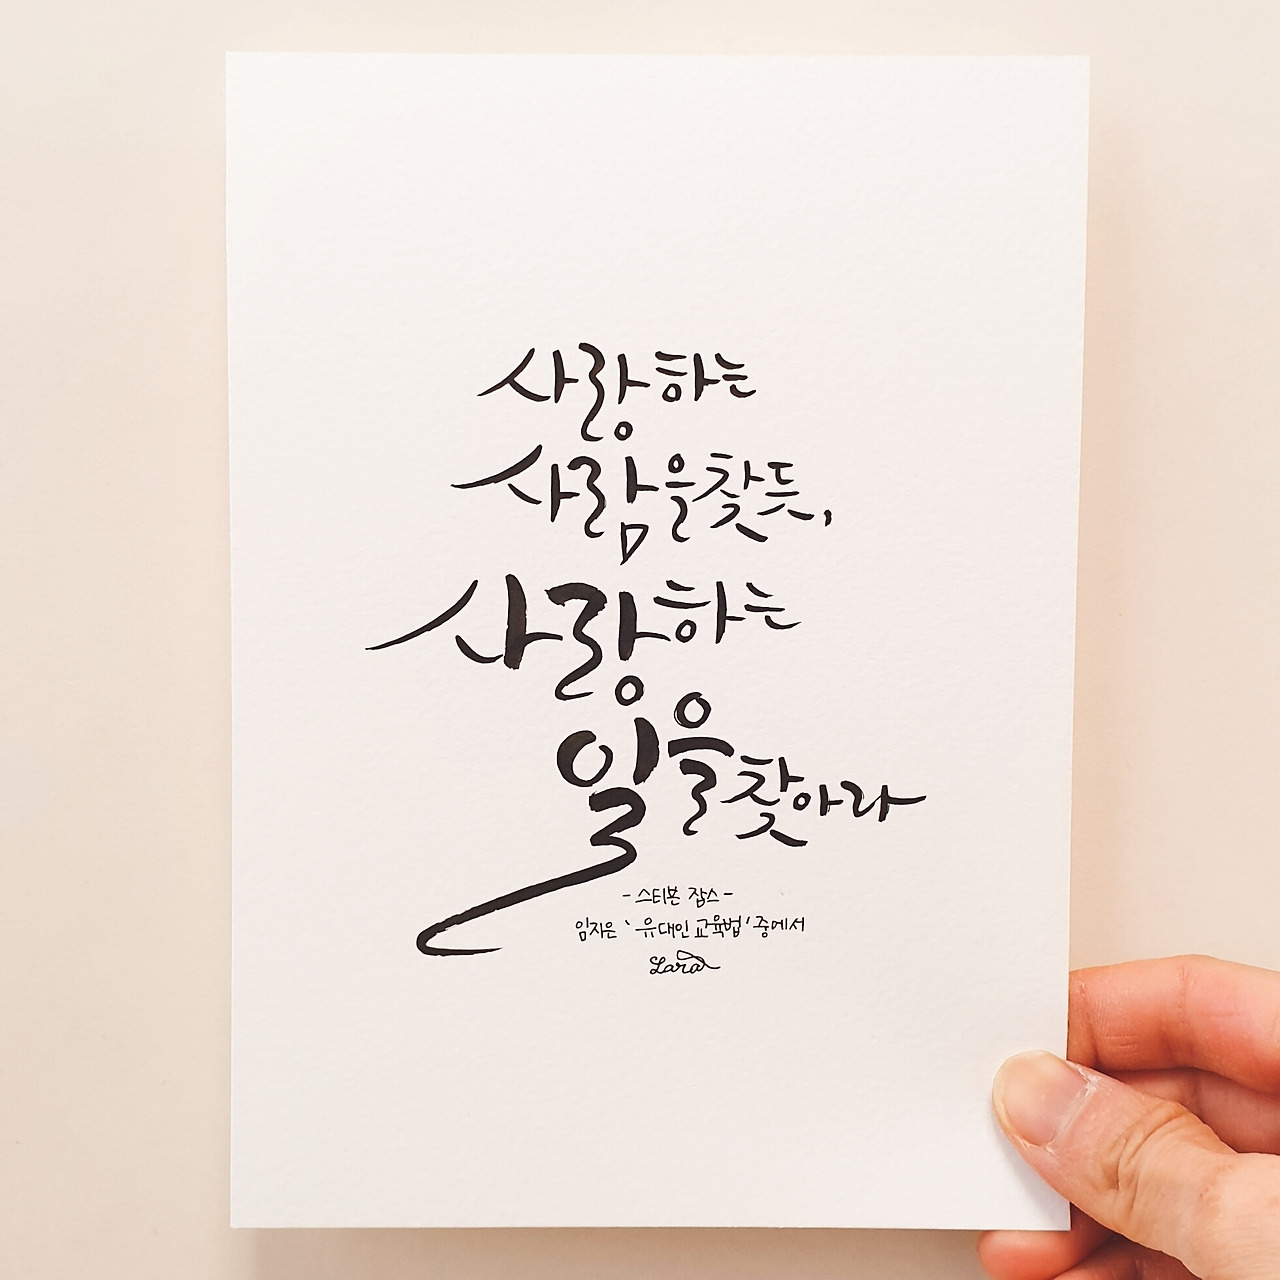 사랑하는
사람을 찾듯,
사랑하는
일을 찾아라
- 스티븐 잡스 -
임지은 '유대인 교육법' 중에서
Lara